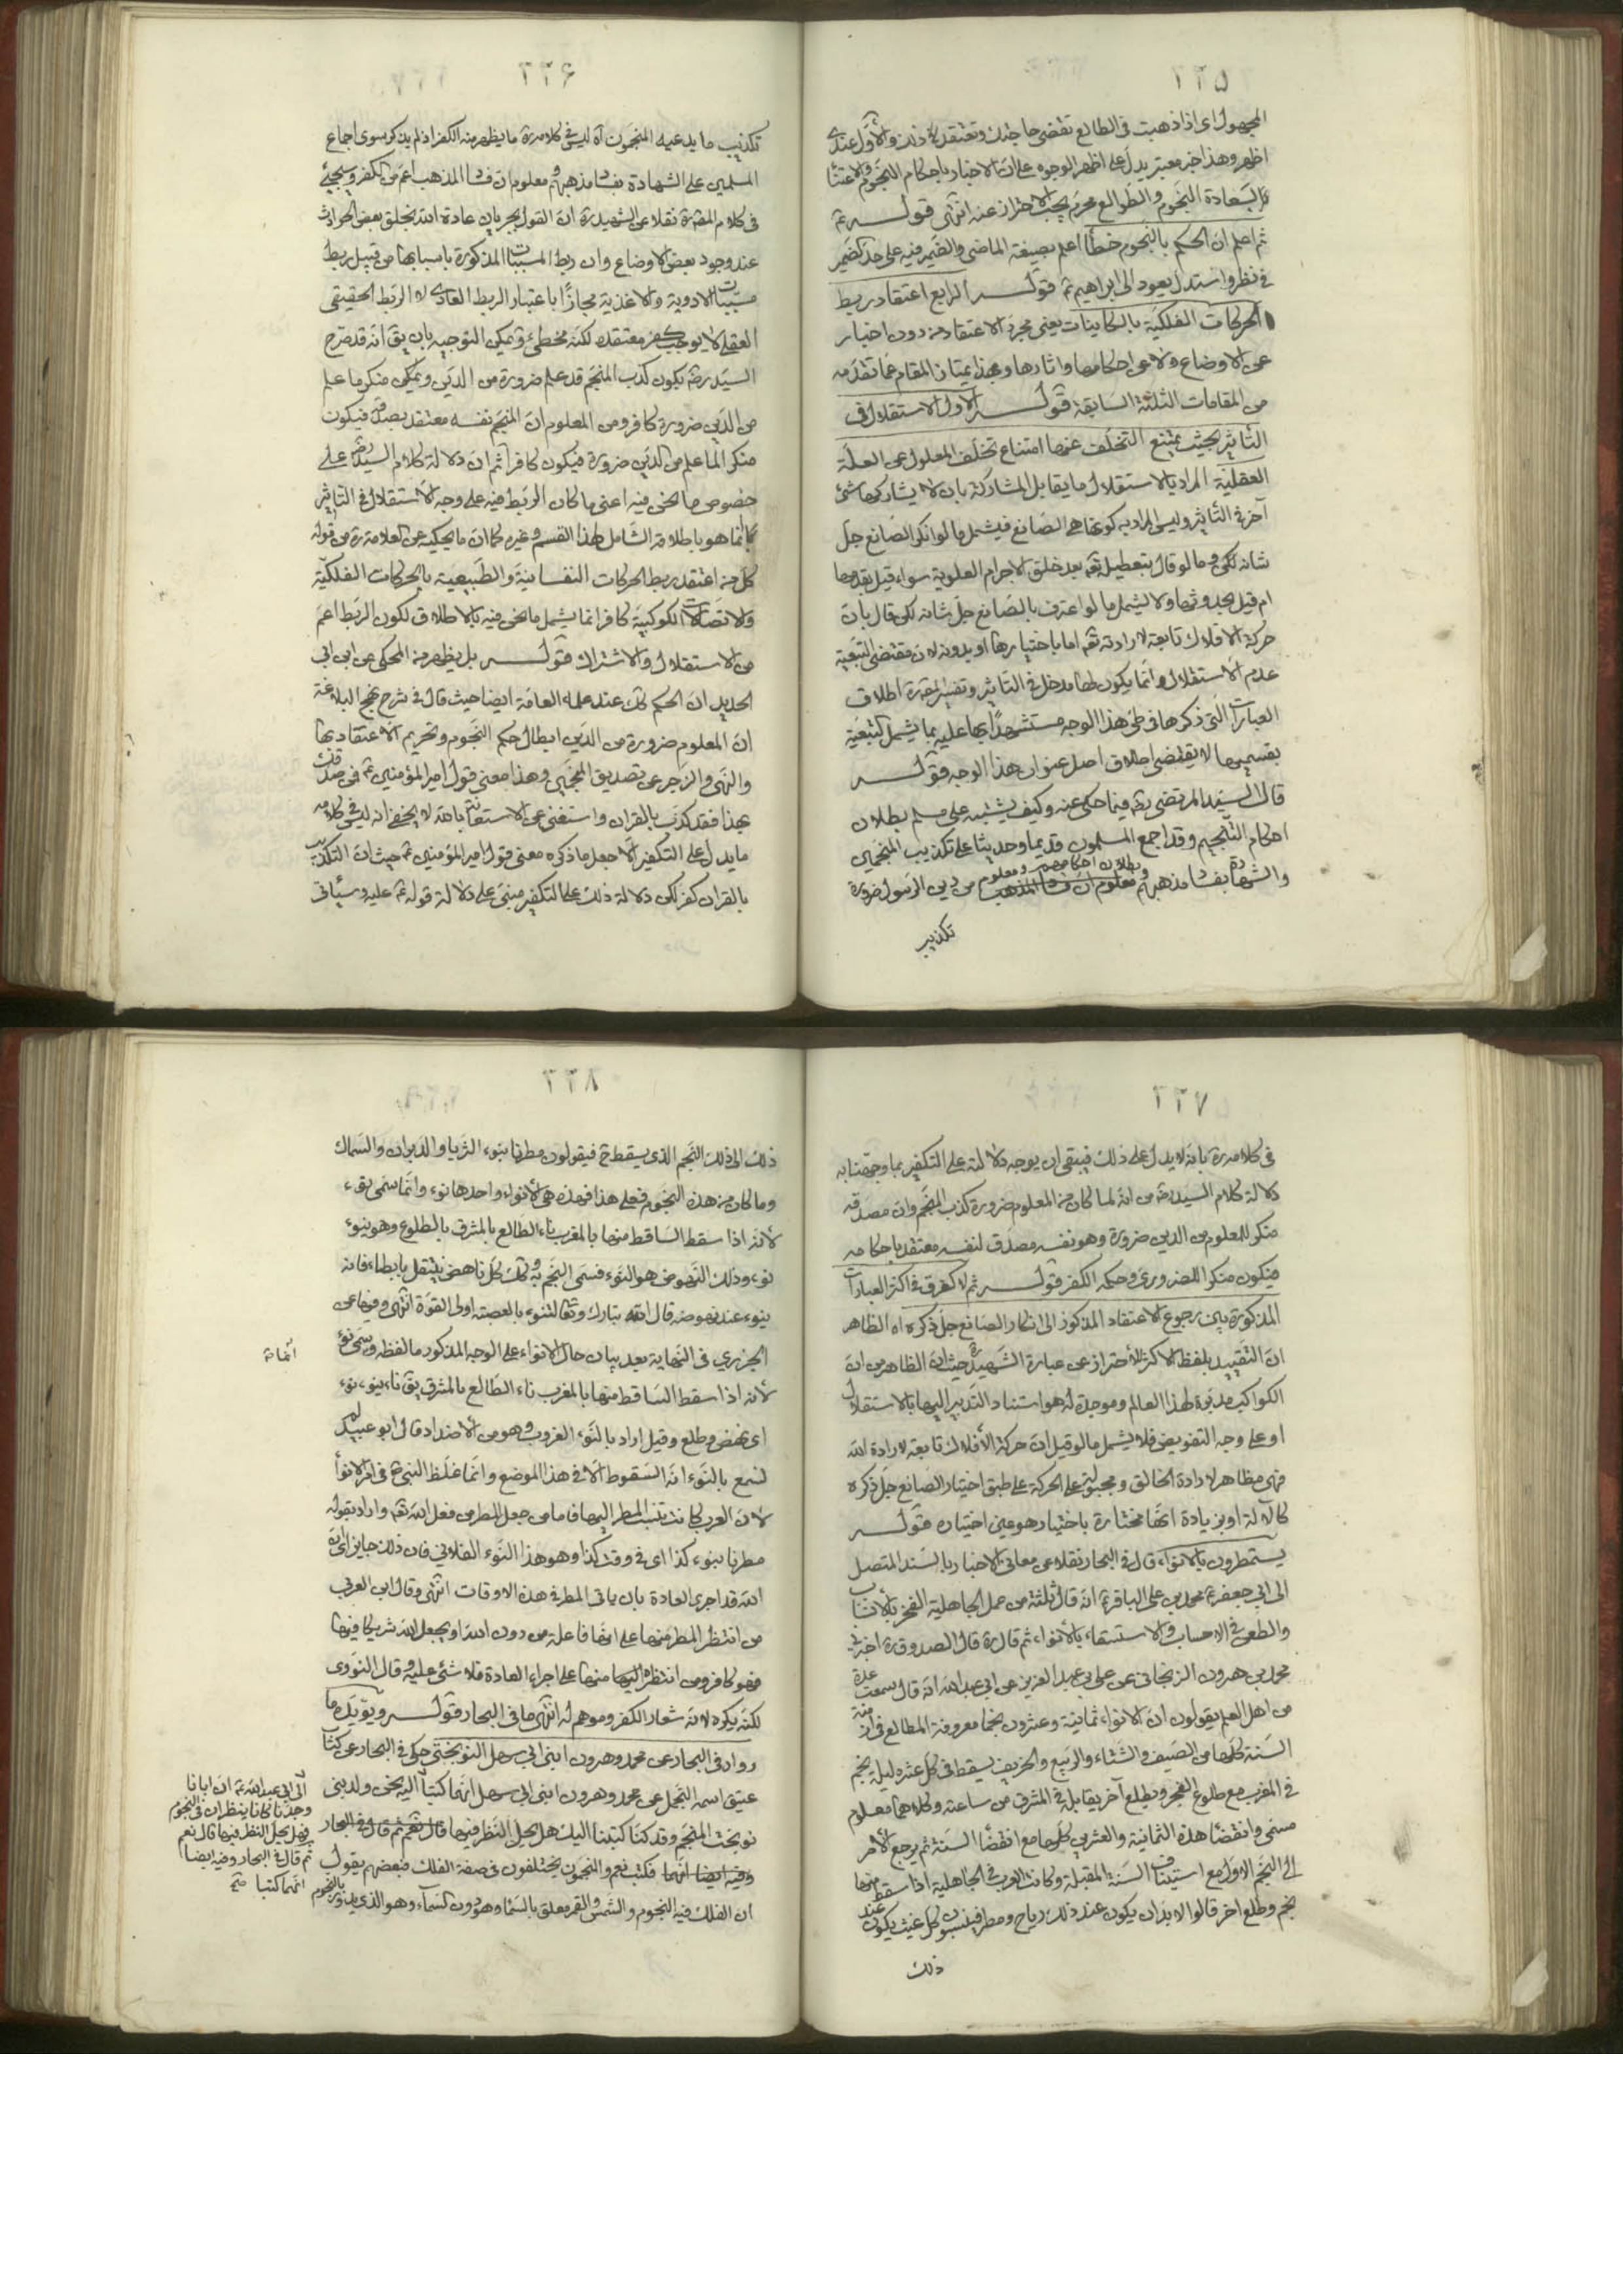 ٢٢٥
المجهول اى اذا ذهبت فى الطالع تقضى حاجتك وتعتقد ذلك والأول عندى
اظهر وهذا خبر معتبر يدل على اظهر الوجوه على ان الاخبار باحكام النجوم والاعتناء
بسعادة النجوم والطوالع محرم يجب الاحتراز عنه انتهى قوله
ثم اعلم ان الحكم بالنجوم خطأ اعلم بصيغة الماضى والضمير فيه على حد كضمير
فى نظر واستدل يعود الى ابراهيم قوله الرابع اعتقاد ربط
الحركات الفلكية بالكاينات يعنى مجرد الاعتقاد من دون اخبار
عن الاوضاع ولا عن احكامها واثارها وبهذا يمتاز المقام عما تقدمه
من المقامات الثلثة السابقة قوله الاول الاستقلال فى
التأثير بحيث يمتنع التخلف عنها امتناع تخلف المعلول عن العلة
العقلية المراد بالاستقلال ما يقابل المشاركة بان لا يشاركها شئ
آخر فى التأثير وليس المراد به كونها هى الصانع فيشمل ما لو انكر الصانع جل
شانه لكن وما لو قال بتعطيله تعالى بعد خلق الاجرام العلوية سواء قيل بقدمها
ام قيل بحدوثها ولا يشمل ما لو اعترف بالصانع جل شانه لكن قال بان
حركة الافلاك تابعة لارادته تعالى اما باختيارها او بدونه لان مقتضى التبعية
عدم الاستقلال وانما يكون لها مدخل فى التاثير وتفسير المص ره اطلاق
العبارات التى ذكرها فى طى هذا الوجه مستشهدا بها عليه بما يشمل التبعية
بقسميها لا يقتضى اطلاق اصل عنوان هذا الوجه قوله
قال السيد المرتضى ره فيما حكى عنه وكيف يشتبه على مسلم بطلان
احكام التنجيم وقد اجمع المسلمون قديما وحديثا على تكذيب المنجمين
والشهادة بفساد مذهبهم وبطلان احكامهم ومعلوم من دين الرسول ضرورة
تكذيب
٢٢۶
تكذيب ما يدعيه المنجمون آه ليس فى كلامه ره ما يظهر منه الكفر اذ لم يذكر سوى اجماع
المسلمين على الشهادة بفساد مذهبهم ومعلوم ان فساد المذهب اعم من الكفر وسيجئ
فى كلام المص ره نقلا عن الشهيد ره ان القول بجريان عادة الله بخلق بعض الحوادث
عند وجود بعض الاوضاع وان ربط المسببات المذكورة باسبابها من قبيل ربط
مسببات الادوية والاغذية مجازًا باعتبار الربط العادى لا الربط الحقيقى
العقلى لا يوجب كفر معتقده لكنه مخطئ ويمكن التوجيه بان يق انه قد صرح
السيد ره بكون كذب المنجم قد علم ضرورة من الدين ويكون منكر ما علم
من الدين ضرورة كافر ومن المعلوم ان المنجم نفسه معتقد بصدقه فيكون
منكر الما علم من الدين ضرورة فيكون كافرا ثم ان دلالة كلام السيد ره على
خصوص ما نحن فيه اعنى ما كان الربط فيه على وجه الاستقلال فى التاثير
انما هو باطلاقه الشامل لهذا القسم وغيره كما ان ما يحكيه عن العلامة ره من قوله
كل من اعتقد ربط الحركات النفسانية والطبيعية بالحركات الفلكية
والاتصالات الكوكبية كافر انما يشمل ما نحن فيه بالاطلاق لكون الربط اعم
من الاستقلال والاشتراك قوله بل يظهر من المحكى عن ابن ابى
الحديد ان الحكم كك عند علماء العامة ايضا حيث قال فى شرح نهج البلاغة
ان المعلوم ضرورة من الدين ابطال حكم النجوم وتحريم الاعتقاد بها
والنهى والزجر عن تصديق المنجمين وهذا معنى قول امير المؤمنين ع فمن صدقك
بهذا فقد كذب بالقران واستغنى عن الاستعانة بالله لا يخفى انه ليس فى كلامه
ما يدل على التكفير الا جعل ما ذكره معنى قول امير المؤمنين ع حيث ان التكذيب
بالقران كفر لكن دلالة ذلك على التكفير مبنى على دلالة قوله ع عليه وسيأتى
٢٢٧
فى كلامه ره بانه لا يدل على ذلك فيبقى ان يوجه دلالته على التكفير بما وجهنا به
دلالة كلام السيد ره من انه لما كان من المعلوم ضرورة كذب المنجم وان مصدقه
منكر للمعلوم من الدين ضرورة وهو نفسه مصدق لنفسه معتقد باحكامه
فيكون منكر الضرورى وحكمه الكفر قوله ثم لا فرق فى اكثر العبارات
المذكورة بين رجوع الاعتقاد المذكور الى انكار الصانع جل ذكره اه الظاهر
ان التقييد بلفظ الاكثر للاحتراز عن عبارة الشهيد ره حيث ان الظاهر من ان
الكواكب مدبرة لهذا العالم وموجدة له هو استناد التدبير اليها بالاستقلال
او على وجه التفويض فلا يشمل ما لو قيل ان حركة الأفلاك تابعة لارادة الله
فهى مظاهر لارادة الخالق ومجبولة على الحركة على طبق اختيار الصانع جل ذكره
كالآلة او بزيادة انها مختارة باختيار هو عين اختياره قوله
يستمطرون بالانواء قال فى البحار نقلا عن معانى الاخبار بالسند المتصل
الى ابى جعفر محمد بن على الباقر ع انه قال ثلثة من عمل الجاهلية الفخر بالانساب
والطعن فى الاحساب والاستسقاء بالأنواء ثم قال ره قال الصدوق ره اخبرنى
محمد بن هرون الزنجانى عن على بن عبد العزيز عن ابى عبد الله انه قال سمعت عدة
من اهل العلم يقولون ان الانواء ثمانية وعشرون نجما معروفة المطالع فى ازمنة
السنة كلها من الصيف والشتاء والربيع والخريف يسقط فى كل عشره ليلة نجم
فى المغرب مع طلوع الفجر ويطلع آخر يقابله فى المشرق من ساعته وكلاهما معلوم
مسمى وانقضاء هذه الثمانية والعشرين كلها مع انقضاء السنة ثم يرجع الأمر
الى النجم الاول مع استيناف السنة المقبلة وكانت العرب فى الجاهلية اذا سقط منها
نجم وطلع اخر قالوا لا بد ان يكون عند ذلك رياح ومطر فينسبون كل غيث يكون عند
ذلك
٢٢٨
ذلك الى ذلك النجم الذى يسقط ح فيقولون مطرنا بنوء الثريا والدبران والسماك
وما كان من هذه النجوم فعلى هذا فهذه هى الأنواء واحدها نوء وانما سمى نوء
لأنه اذا سقط الساقط منها بالمغرب ناء الطالع بالمشرق بالطلوع وهو ينوء
نوء وذلك النهوض هو النوء فسمى النجم به وكك كل ناهض ينتقل بابطاء فانه
ينوء عند نهوضه قال الله تبارك وتعالى لتنوء بالعصبة اولى القوة انتهى وفيها عن
الجزرى فى النهاية بعد بيان حال الانواء على الوجه المذكور ما لفظه وسمى نوء
لأنه اذا سقط الساقط منها بالمغرب ناء الطالع بالمشرق يق ناء ينوء نوء
اى نهض وطلع وقيل اراد بالنوء الغروب وهو من الأضداد قال ابو عبيد لم
نسمع بالنوء انه السقوط الا فى هذا الموضع وانما غلظ النبى ص فى امر الانواء
لان العرب كانت تنسب المطر اليها فاما من جعل المطر من فعل الله تعالى واراد بقوله
مطرنا بنوء كذا اى فى وقت كذا وهو هذا النوء الفلانى فان ذلك جايز اى ان
الله قد اجرى العادة بان ياتى المطر فى هذه الاوقات انتهى وقال ابن العربى
من انتظر المطر منها على انها فاعلة من دون الله او يجعل الله شريكا فيها
فهو كافر ومن انتظره منها على اجراء العادة فلا شئ عليه وقال النووى
لكنه يكره لانه شعار الكفر وموهم له انتهى ما فى البحار قوله ويؤيده ما
رواه فى البحار عن محمد وهرون ابنى ابى سهل النوبختى حكى فى البحار عن كتاب
عتيق اسمه التجمل عن محمد وهرون ابنى ابى سهل انهما كتبا اليه نحن ولد بنى
نوبخت المنجم وقد كنا كتبنا اليك هل يحل النظر فيها قال نعم ثم قال فى البحار
وفيه ايضا انهما فكتب نعم والمنجمون يختلفون فى صفة الفلك فبعضهم يقول
ان الفلك فيه النجوم والشمس والقمر معلق بالسماء وهو دون السماء وهو الذى يدور بالنجوم
انما
الى ابى عبد الله ع ان ابانا
وجدنا كانا ينظران فى النجوم
فهل يحل النظر فيها قال نعم
ثم قال فى البحار وفيه ايضا
انهما كتبا صح